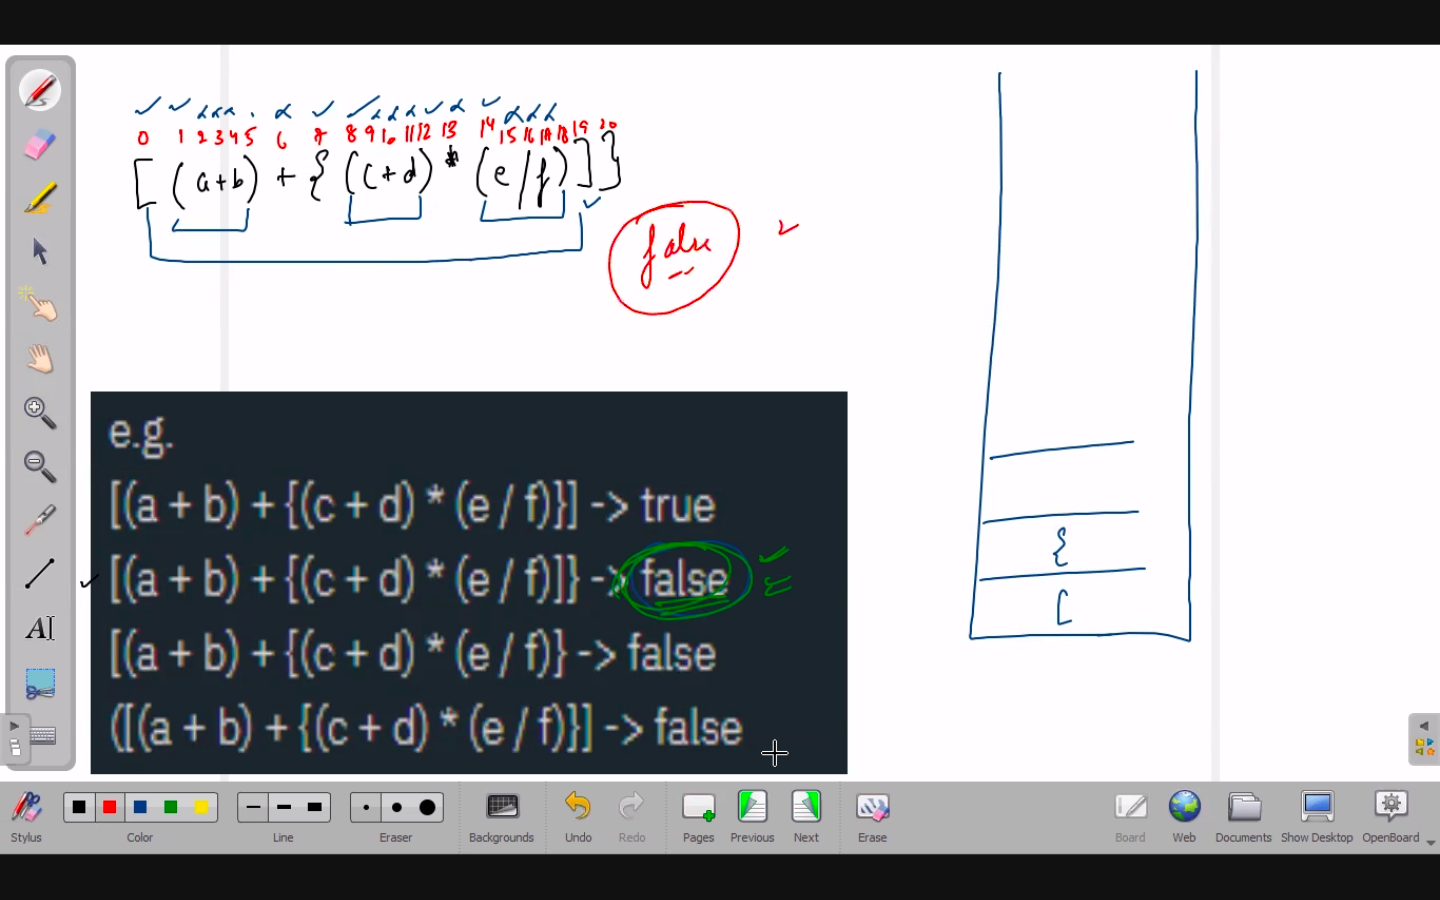 0 1 2 3 4 5 6 7 8 9 10 11 12 13 14 15 16 17 18 19 20
[ (a+b) + { (c+d) * (e/f) ] }
false
e.g.
[(a + b) + {(c + d) * (e / f)}] -> true
[(a + b) + {(c + d) * (e / f)]} -> false
[(a + b) + {(c + d) * (e / f)} -> false
([(a + b) + {(c + d) * (e / f)}] -> false
{
[
A
Stylus Color Line Eraser Backgrounds Undo Redo Pages Previous Next Erase Board Web Documents Show Desktop OpenBoard